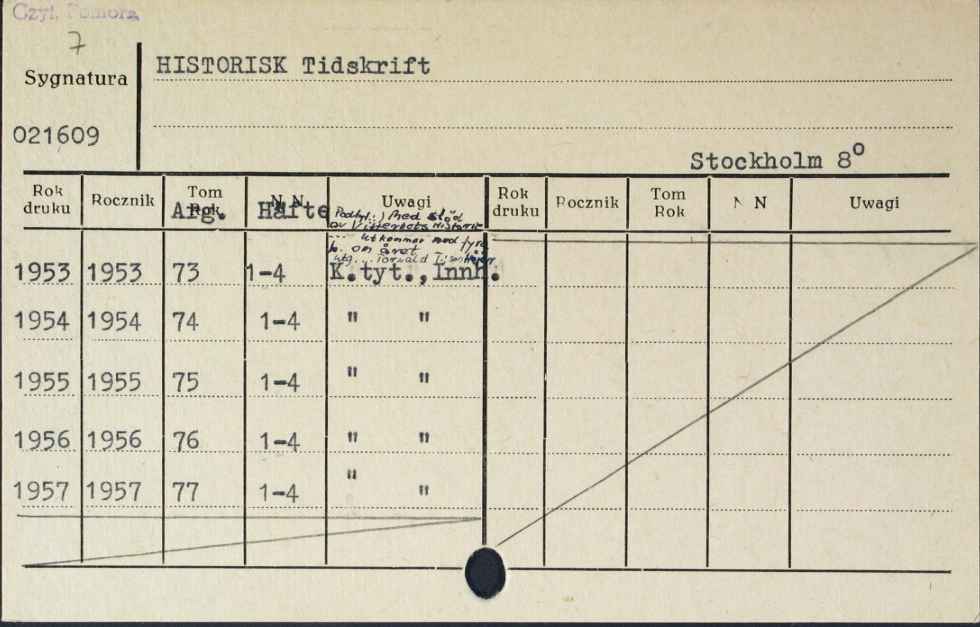 Czyt. Pomorz.
7
Sygnatura
HISTORISK Tidskrift
021609
Stockholm 8°
Rok druku Rocznik Tom Rok N N Uwagi Rok druku Rocznik Tom Rok N N Uwagi
Arg. Häfte
Podtyt.: Med stöd
av Vitterhets Historie
... utkommer med fyra
h. om året
utg. ... Torvald
1953 1953 73 1-4 K.tyt., Innh.
1954 1954 74 1-4 " "
1955 1955 75 1-4 " "
1956 1956 76 1-4 " "
1957 1957 77 1-4 " "